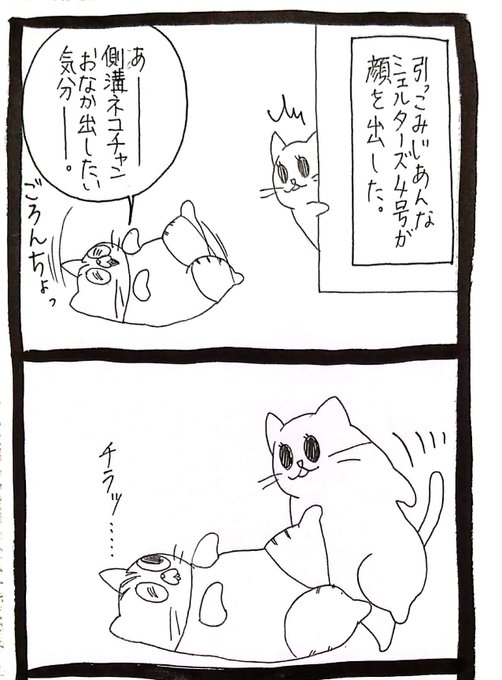 引っこみじあんな
シェルターズ4号が
顔を出した。
あーーー
側溝ネコチャン
おなか出したい
気分ーー。
ごろんちょっ
チラッ……